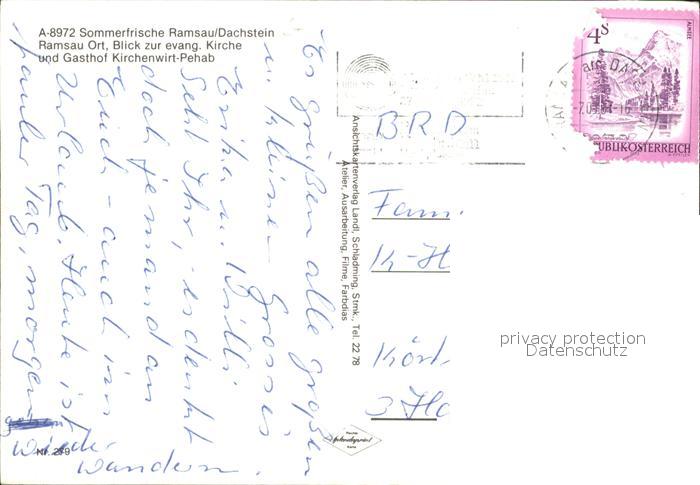 A-8972 Sommerfrische Ramsau/Dachstein
Ramsau Ort, Blick zur evang. Kirche
und Gasthof Kirchenwirt-Pehab
Es grüßen alle großen
u. kleinen Grosses
Erika u. Willi.
Seht Ihr, es denkt
doch jemand an
Euch - auch im
Urlaub. Heute ist
fauler Tag, morgen
wieder
wandern.
Nr. 279
Ansichtskartenverlag Landl, Schladming, Stmk., Tel. 22 78
Atelier, Ausarbeitung, Filme, Farbdias
BRD
Fam.
K-H
Körl
3 Ha
4 S
ALMSEE
REPUBLIK ÖSTERREICH
privacy protection
Datenschutz